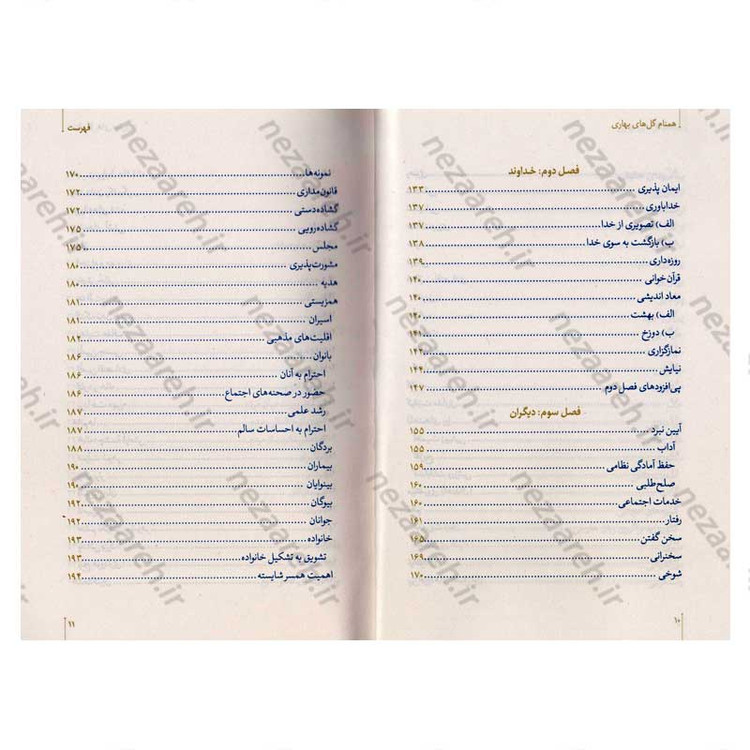 همنام گل‌های بهاری
فصل دوم: خداوند
ایمان پذیری ۱۳۳
خداباوری ۱۳۷
الف) تصویری از خدا ۱۳۷
ب) بازگشت به سوی خدا ۱۳۸
روزه‌داری ۱۳۹
قرآن‌خوانی ۱۴۰
معاد اندیشی ۱۴۰
الف) بهشت ۱۴۰
ب) دوزخ
نمازگزاری
نیایش ۱۴۴
پی‌افزودهای فصل دوم ۱۴۷
فصل سوم: دیگران
آیین نبرد ۱۵۵
آداب ۱۵۵
حفظ آمادگی نظامی ۱۵۹
صلح‌طلبی ۱۶۰
خدمات اجتماعی ۱۶۰
رفتار ۱۶۱
سخن گفتن ۱۶۵
سخنرانی ۱۶۹
شوخی ۱۷۰
۱۰
فهرست
نمونه‌ها ۱۷۰
قانون‌مداری ۱۷۲
گشاده‌دستی ۱۷۲
گشاده‌رویی ۱۷۵
مجلس ۱۷۵
مشورت‌پذیری ۱۸۰
هدیه ۱۸۰
همزیستی ۱۸۱
اسیران ۱۸۱
اقلیت‌های مذهبی ۱۸۲
بانوان ۱۸۶
احترام به آنان ۱۸۶
حضور در صحنه‌های اجتماع ۱۸۶
رشد علمی ۱۸۷
احترام به احساسات سالم ۱۸۷
بردگان ۱۸۸
بیماران ۱۹۰
بینوایان ۱۹۰
بیوگان ۱۹۲
جوانان ۱۹۲
خانواده ۱۹۳
تشویق به تشکیل خانواده ۱۹۳
اهمیت همسر شایسته ۱۹۴
۱۱
nezaareh.ir